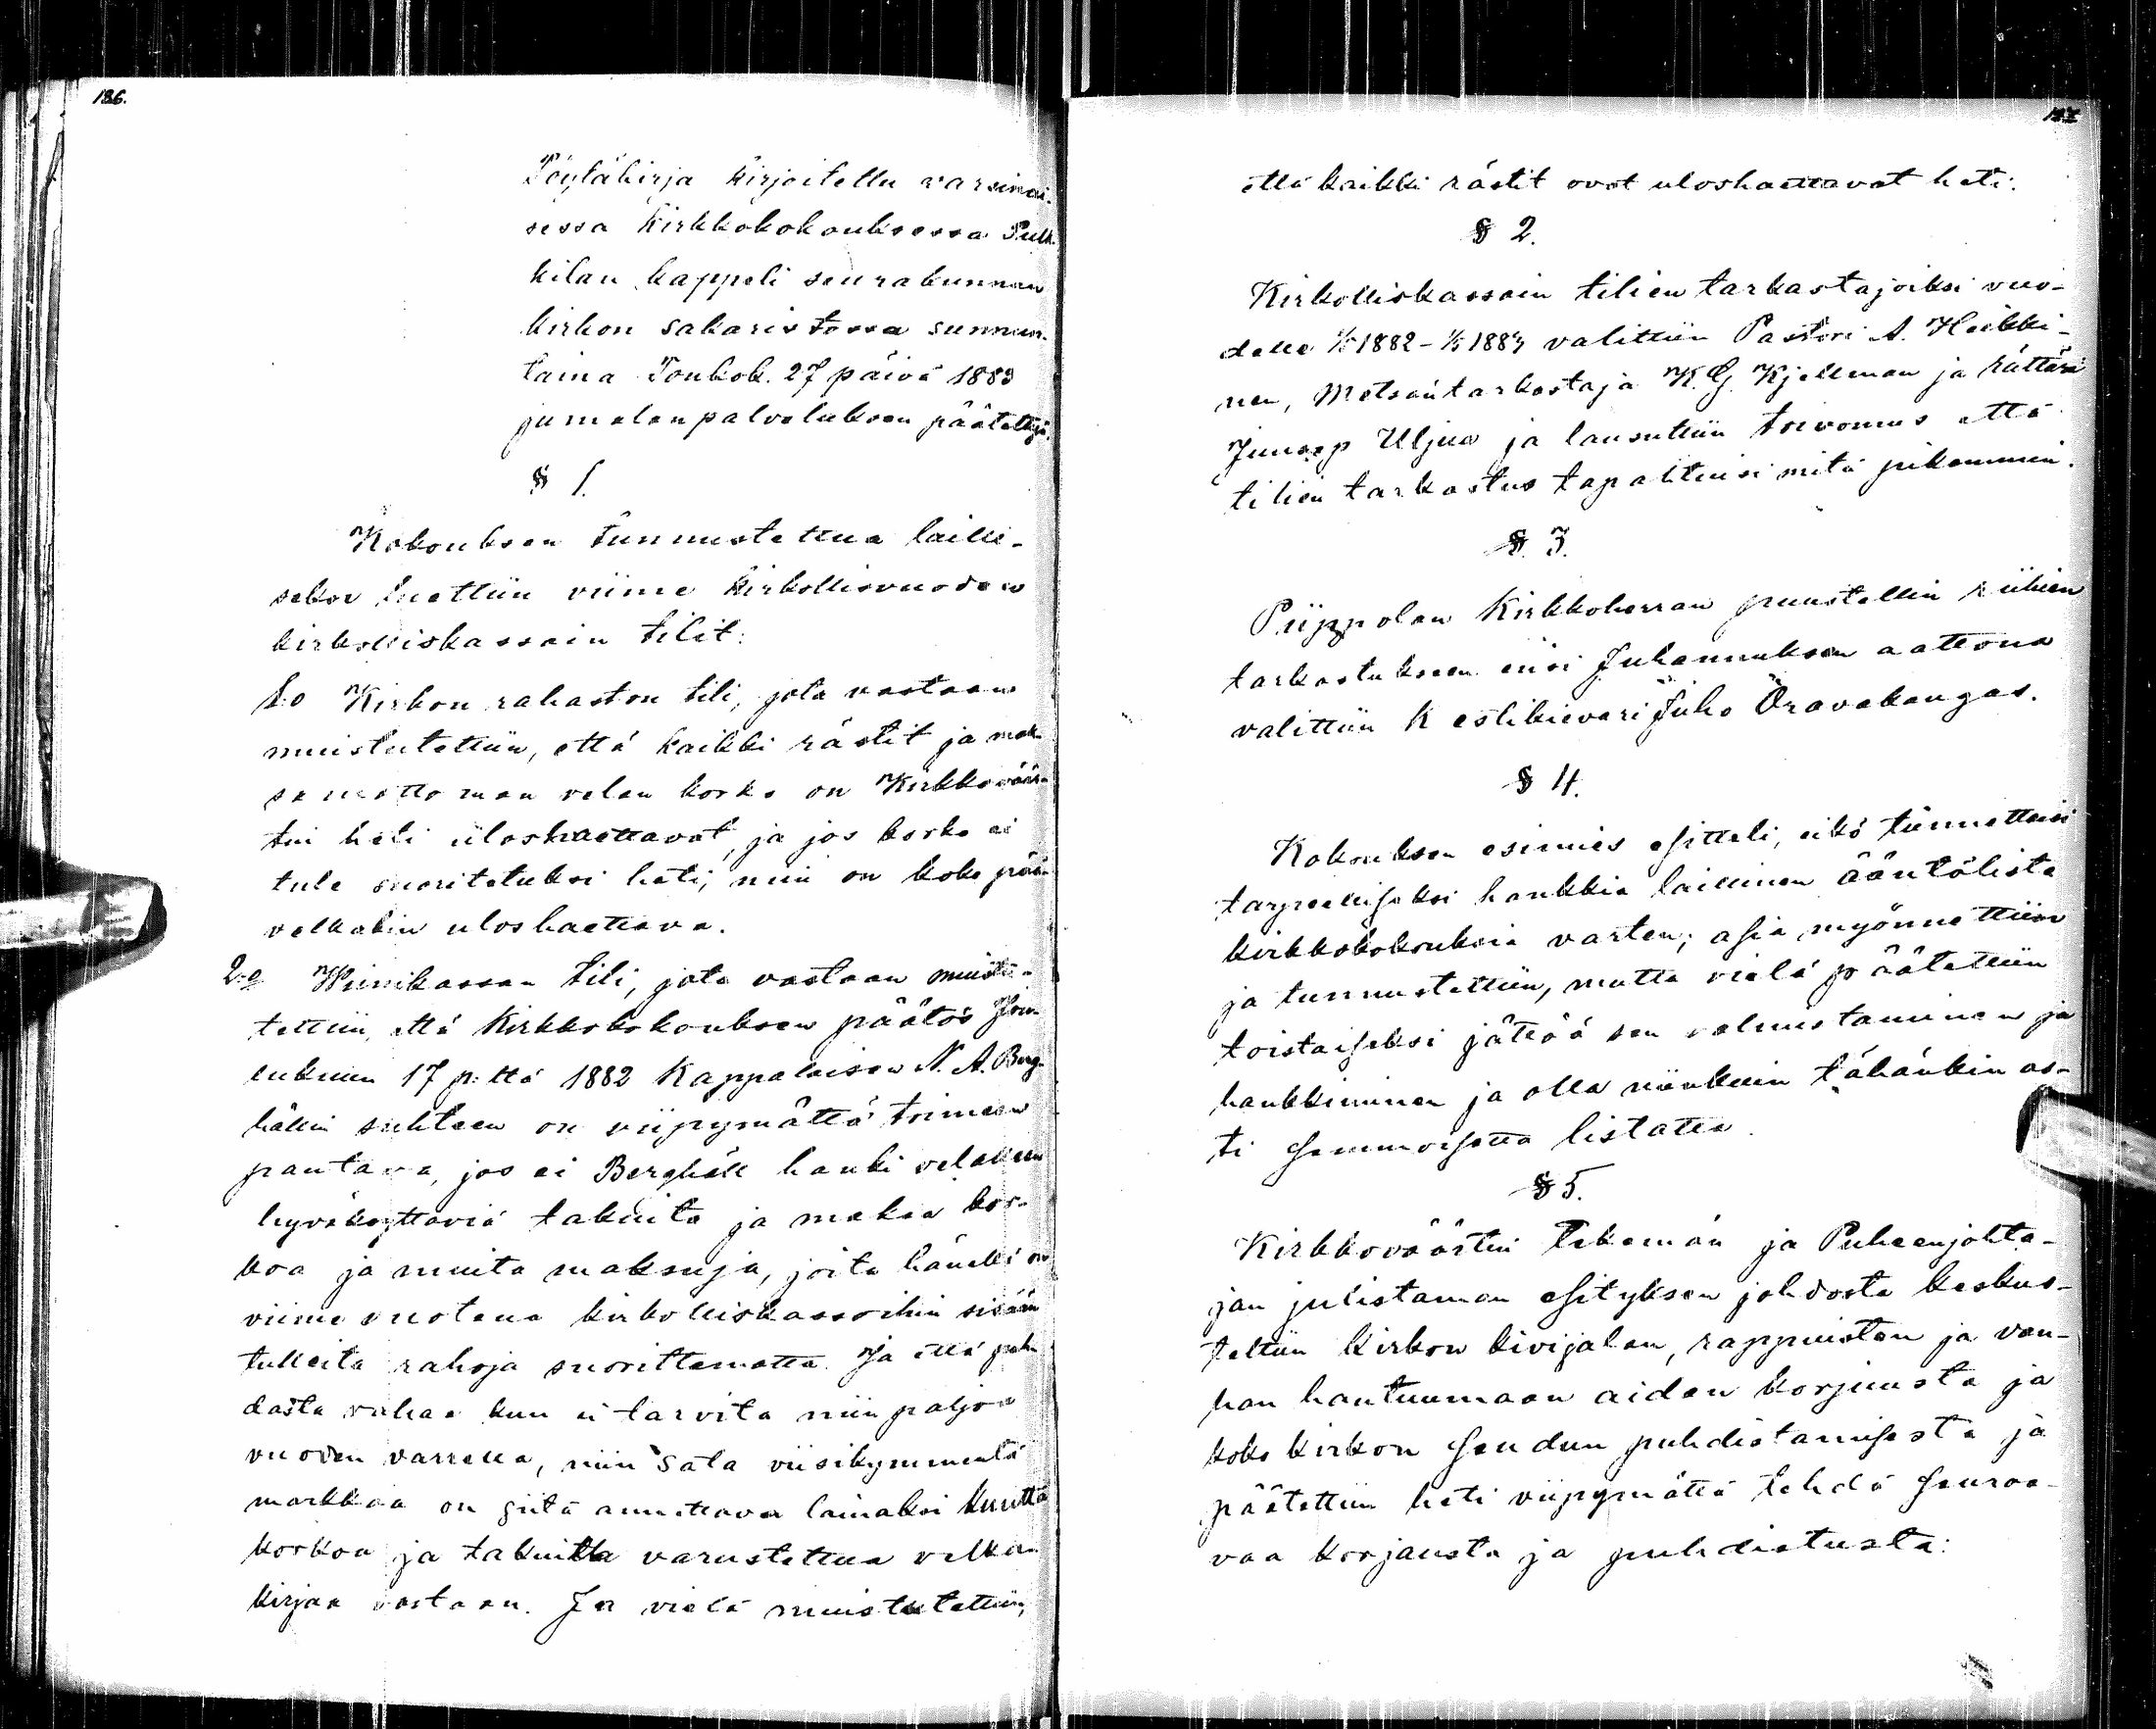 186.
Pöytäkirja kirjoitettu varsinai-
sessa Kirkkokokouksessa Pulk-
kilan kappeli seurakunnan
kirkon sakaristossa sunnun-
taina Toukok. 27 päivä 1883
jumalanpalveluksen päätettyä.
§ 1.
Kokouksen tunnustettua lailli-
seksi luettiin viime kirkollisvuoden
kirkolliskassain tilit:
1:o Kirkon rahaston tili, jota vastaan
muistutettiin, että kaikki rästit ja mak-
samattoman velan korko on Kirkkoväär-
tin heti uloshaettavat, ja jos korko ei
tule suoritetuksi heti, niin on koko pää-
velkakin uloshaettava.
2:o Wiinikassan tili, jota vastaan muistu-
tettiin, että Kirkkokokouksen päätös
kuun 17 p:ltä 1882 Kappalaisen N. A. Berg-
hällin suhteen on viipymättä toimeen
pantava, jos ei Berghäll hanki velalleen
hyväksyttäviä takuita ja maksa kor-
koa ja muita maksuja, joita hänellä on
viime vuotena kirkolliskassoihin sisään
tulleita rahoja suorittamatta. Ja että
dasta rahaa kun ei tarvita niin paljoa
vuoden varrella, niin sata viisikymmentä
markkaa on siitä annettava lainaksi kuutta
korkoa ja takuilla varustettua velka-
kirjaa vastaan. Ja vielä muistutettiin,
187
että kaikki rästit ovat uloshaettavat heti.
§ 2.
Kirkolliskassain tilien tarkastajoiksi vuo-
delle 1/5 1882 - 1/5 1883 valittiin Pastori A. Heikki-
nen, Metsäntarkastaja K. G. Kjellman ja rättäri
Juusep Uljua ja lausuttiin toivomus että
tilien tarkastus tapahtuisi mitä pikemmin.
§. 3.
Piippolan Kirkkoherran puustellin riihien
tarkastukseen ensi Juhannuksen aattona
valittiin Kestikievari Juho Oravakangas.
§ 4.
Kokouksen esimies esitteli, eikö tunnettaisi
tarpeelliseksi hankkia laillinen ääntölista
kirkkokokouksia varten; asia myönnettiin
ja tunnustettiin, mutta vielä päätettiin
toistaiseksi jättää sen valmistaminen ja
hankkiminen ja olla niinkuin tähänkin as-
ti semmoisetta listatta.
§ 5.
Kirkkoväärtin tekemän ja Puheenjohta-
jan julistaman esityksen johdosta keskus-
teltiin Kirkon kivijalan, rappuisten ja van-
han hautuumaan aidan korjuusta ja
koko kirkon seudun puhdistamisesta ja
päätettiin heti viipymättä tehdä seuraa-
vaa korjausta ja puhdistusta: